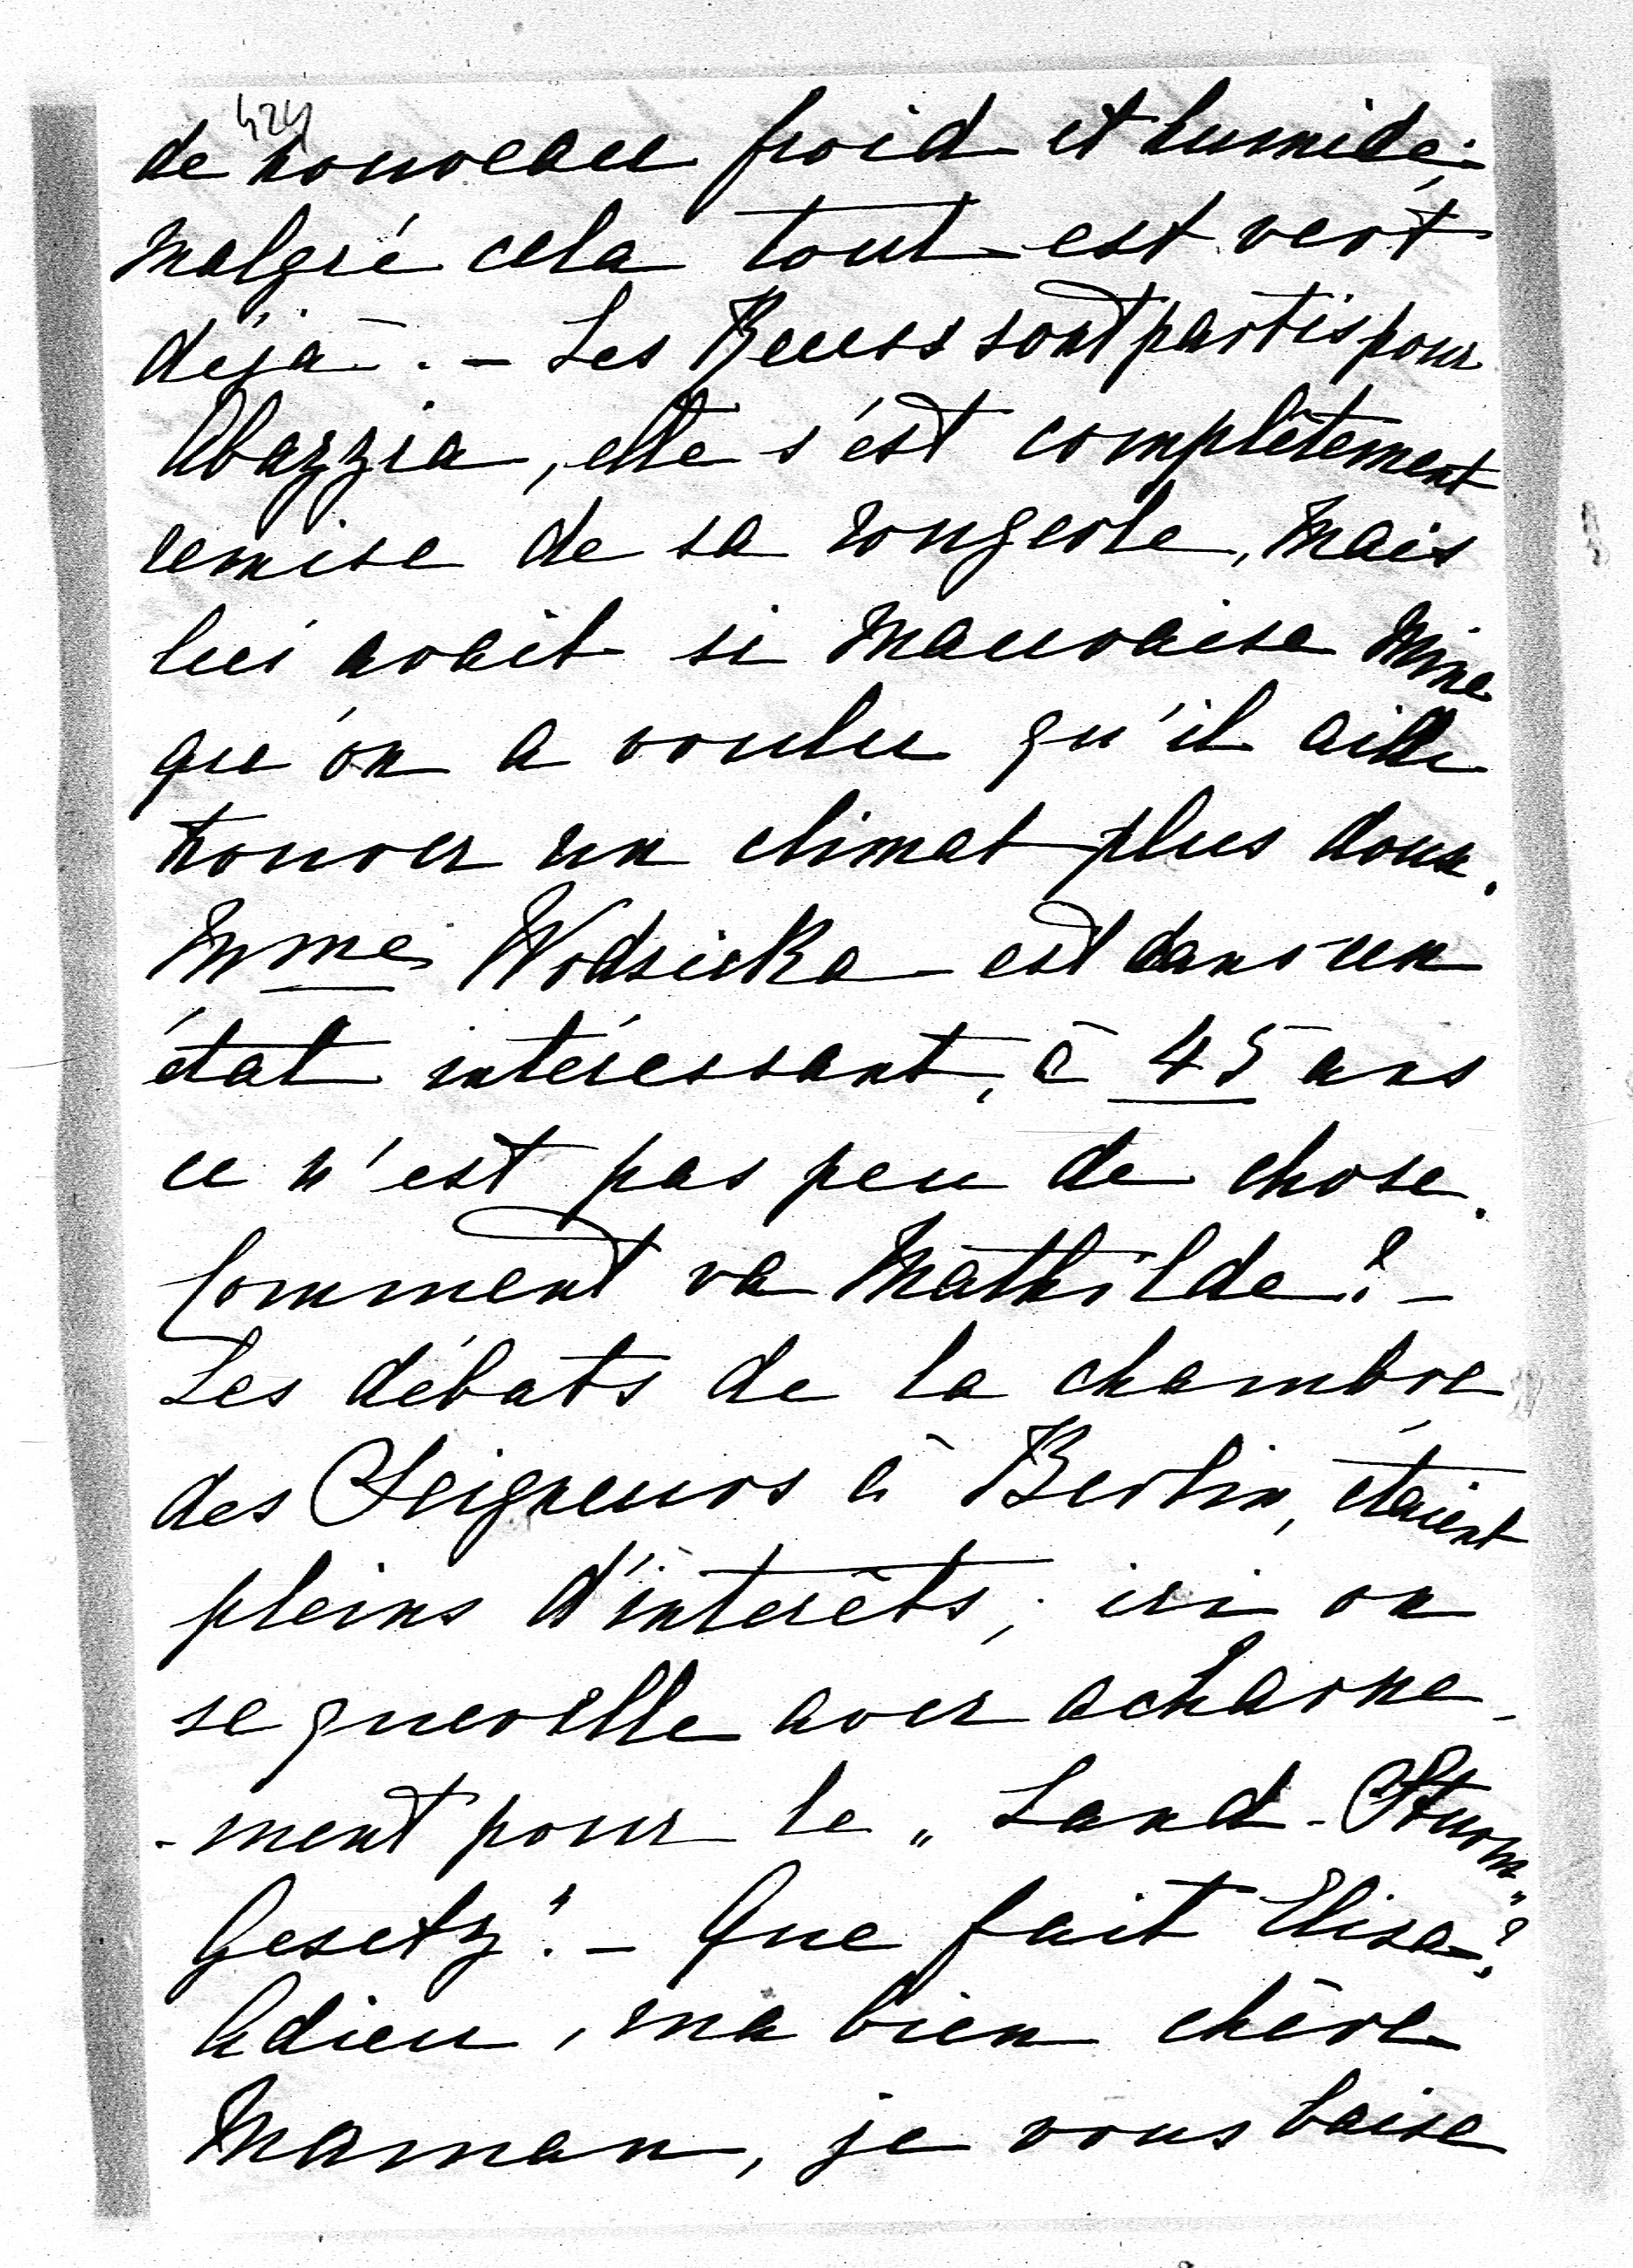 424
de nouveau froid et humide;
malgré cela tout est vert
déjà. - Les Reuss sont partis pour
Abazzia, elle s'est complètement
remise de sa rougeole, mais
lui avait si mauvaise mine
qu'on a voulu qu'il aille
trouver un climat plus doux.
Mme Wodsicka est dans un
état intéressant, à 45 ans
ce n'est pas peu de chose.
Comment va Mathilde? -
Les débats de la chambre
des Seigneurs à Berlin, étaient
pleins d'interêts; ici on
se querelle avec acharne-
-ment pour le „Land-Sturm"
Gesetz". - Que fait Elisa?
Adieu, ma bien chère
Maman, je vous baise